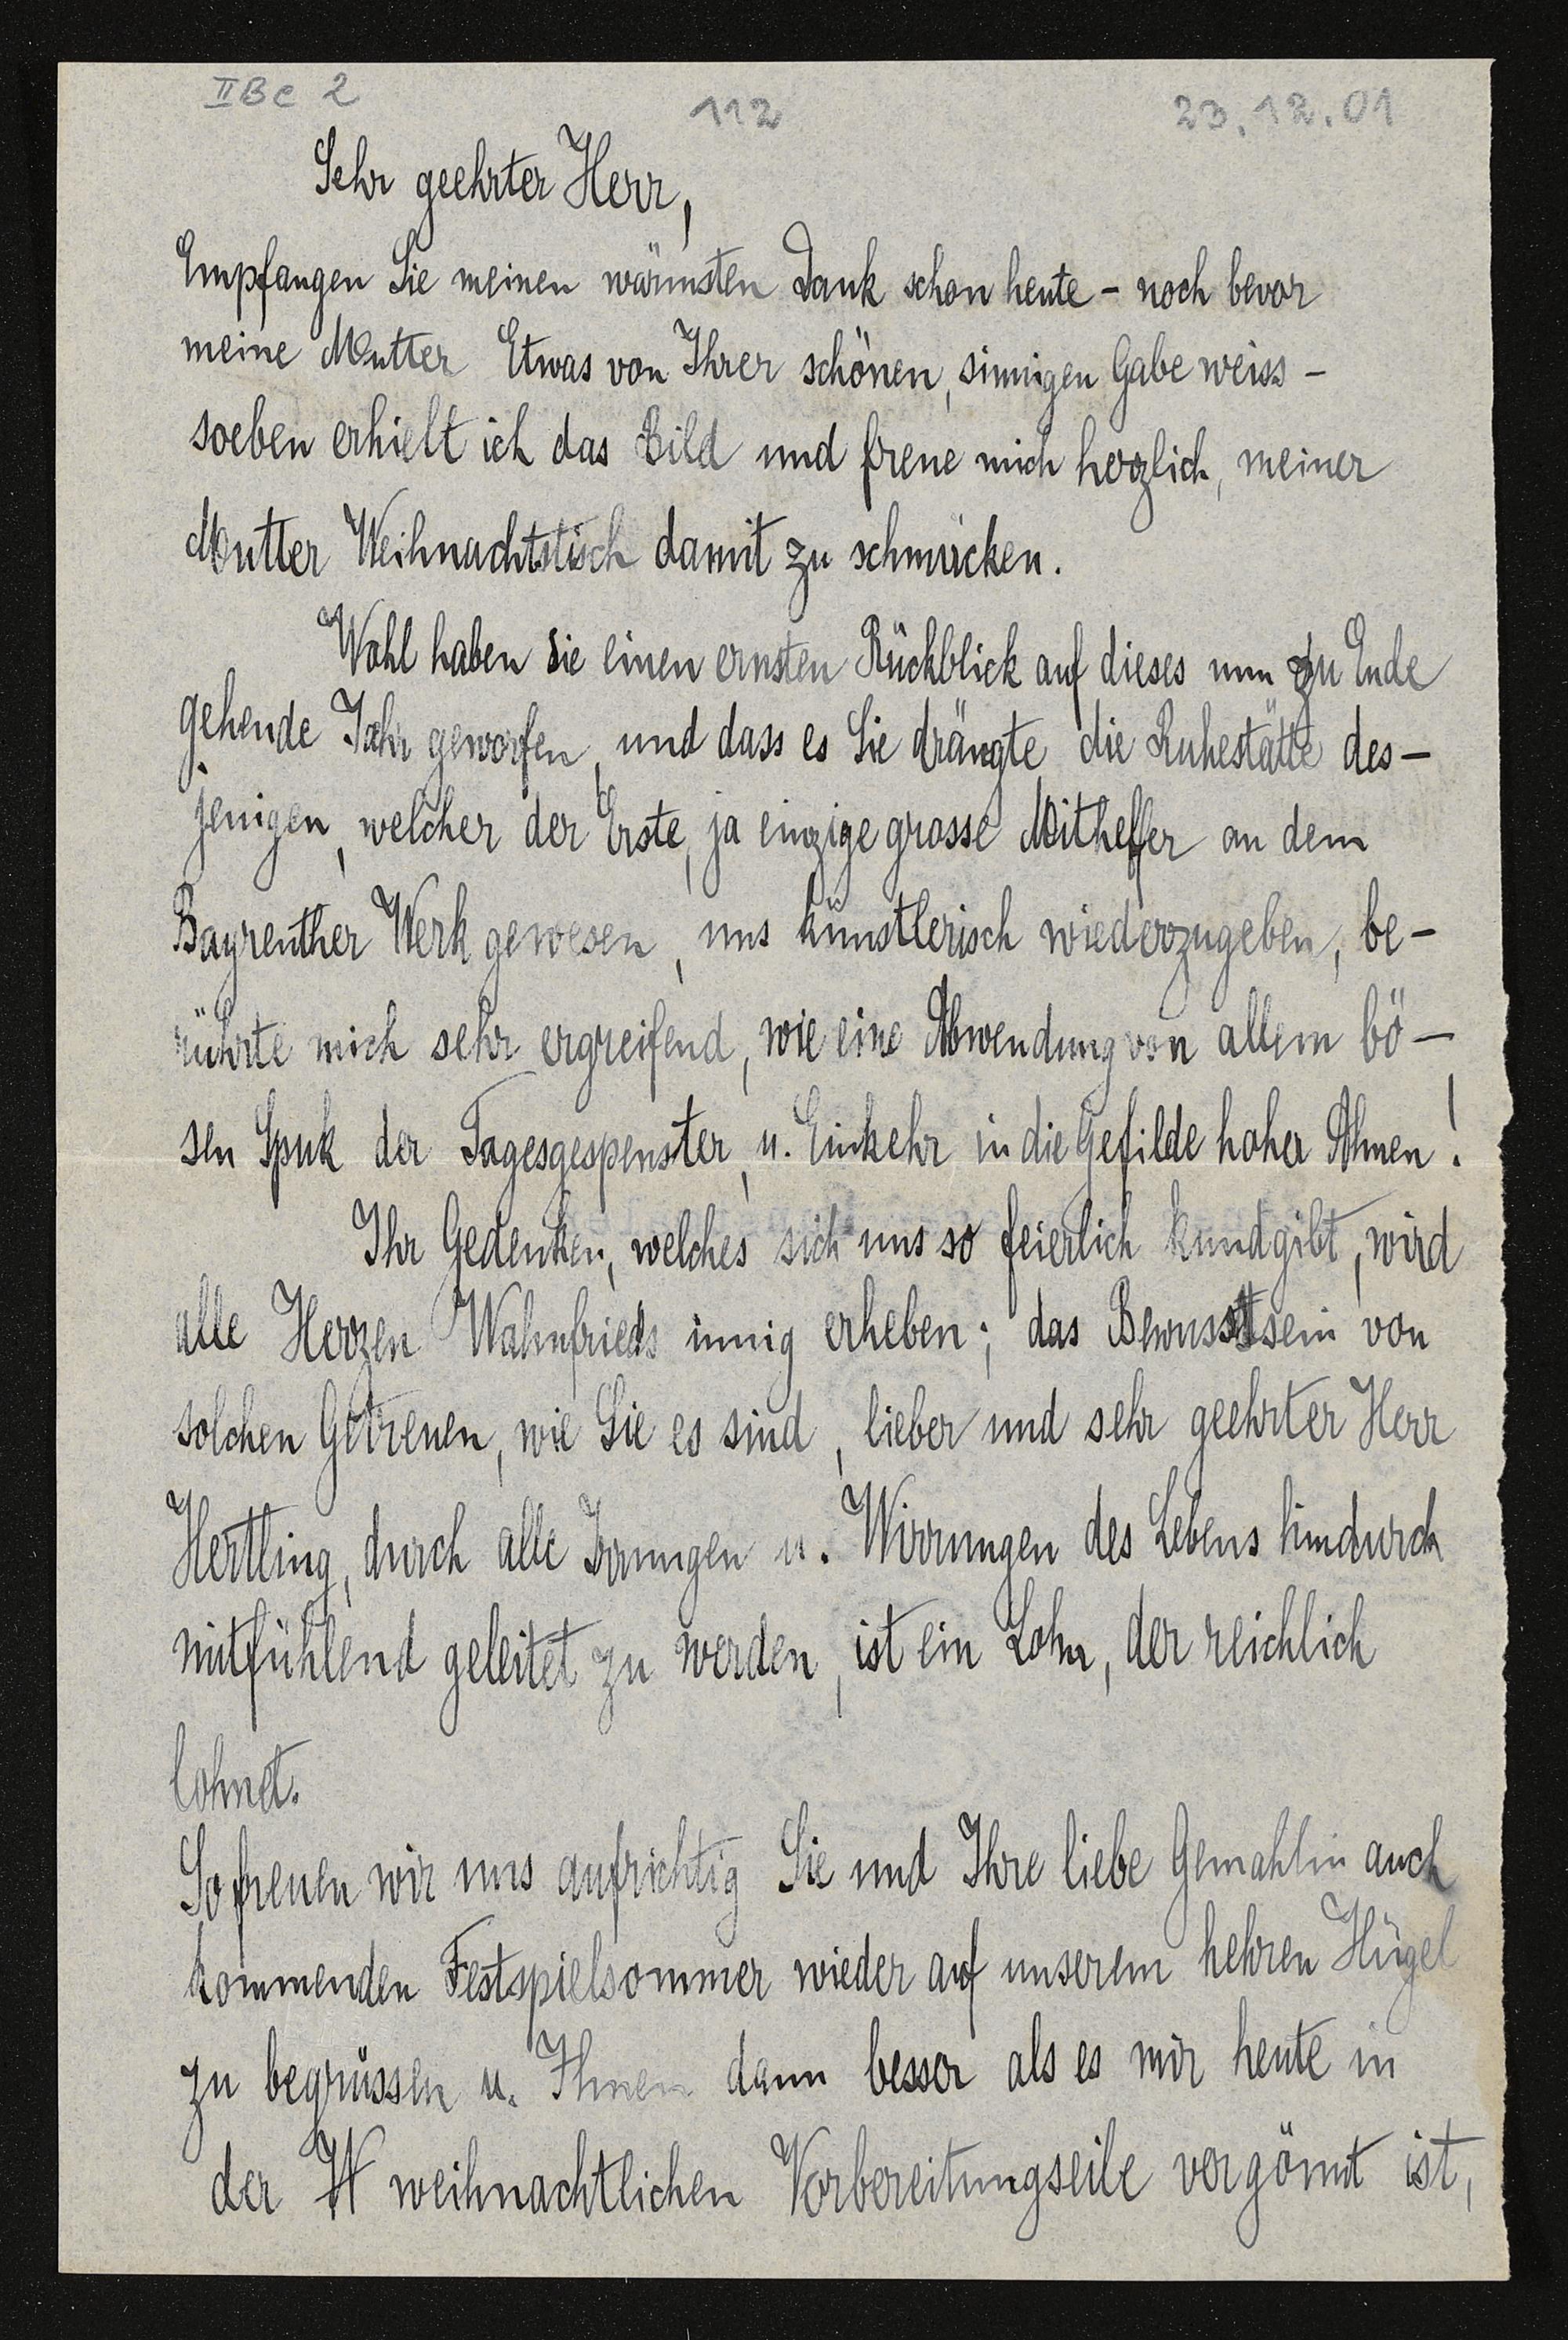 II B c 2
112
23.12.01
Sehr geehrter Herr,
Empfangen Sie meinen wärmsten Dank schon heute – noch bevor
meine Mutter Etwas von Ihrer schönen, sinnigen Gabe weiss –
soeben erhielt ich das Bild und freue mich herzlich, meiner
Mutter Weihnachtstisch damit zu schmücken.
Wohl haben Sie einen ernsten Rückblick auf dieses nun zu Ende
gehende Jahr geworfen, und dass es Sie drängte, die Ruhestätte des–
jenigen, welcher der Erste, ja einzige grosse Mithelfer an dem
Bayreuther Werk gewesen, uns künstlerisch wiederzugeben, be–
rührte mich sehr ergreifend, wie eine Abwendung von allem bö–
sen Spuk der Tagesgespenster, u. Einkehr in die Gefilde hoher Ahnen!
Ihr Gedenken, welches sich uns so feierlich kundgibt, wird
alle Herzen Wahnfrieds innig erheben; das Bewusstsein von
solchen Getreuen, wie Sie es sind, lieber und sehr geehrter Herr
Hertling, durch alle Irrungen u. Wirrungen des Lebens hindurch
mitfühlend geleitet zu werden, ist ein Lohn, der reichlich
lohnet.
So freuen wir uns aufrichtig Sie und Ihre liebe Gemahlin auch
kommenden Festspielsommer wieder auf unserem hehren Hügel
zu begrüssen u. Ihnen dann besser als es mir heute in
der W weihnachtlichen Vorbereitungseile vergönnt ist,